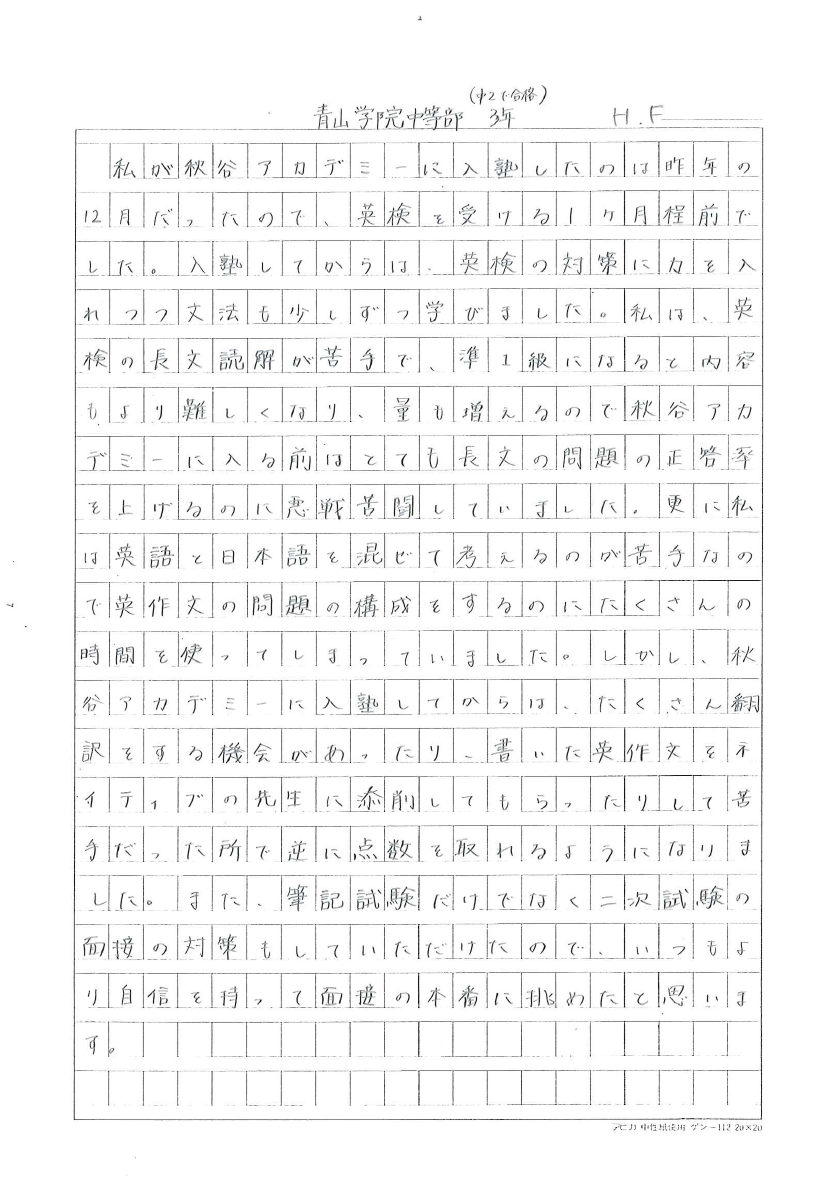 (中2で合格)
青山学院中等部 3年 H.F
私が秋谷アカデミーに入塾したのは昨年の
12月だったので、英検を受ける1ヶ月程前で
した。入塾してからは、英検の対策に力を入
れつつ文法も少しずつ学びました。私は、英
検の長文読解が苦手で、準1級になると内容
もより難しくなり、量も増えるので秋谷アカ
デミーに入る前はとても長文の問題の正答率
を上げるのに悪戦苦闘していました。更に私
は英語と日本語を混じて考えるのが苦手なの
で英作文の問題の構成をするのにたくさんの
時間を使ってしまっていました。しかし、秋
谷アカデミーに入塾してからは、たくさん翻
訳をする機会があったり、書いた英作文をネ
イティブの先生に添削してもらったりして苦
手だった所で逆に点数を取れるようになりま
した。また、筆記試験だけでなく二次試験の
面接の対策もしていただけたので、いつもよ
り自信を持って面接の本番に挑めたと思いま
す。
アピカ 中性紙使用 ゲンー112 20×20